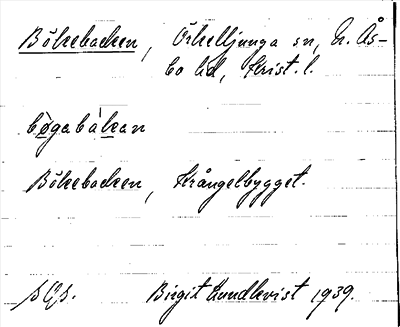 Bökebacken, Örkelljunga sn, N. Ås-
bo hd, Krist. l.
bøgabakan
Bökebacken, Krångelbygget.
Birgit Lundkvist 1939.